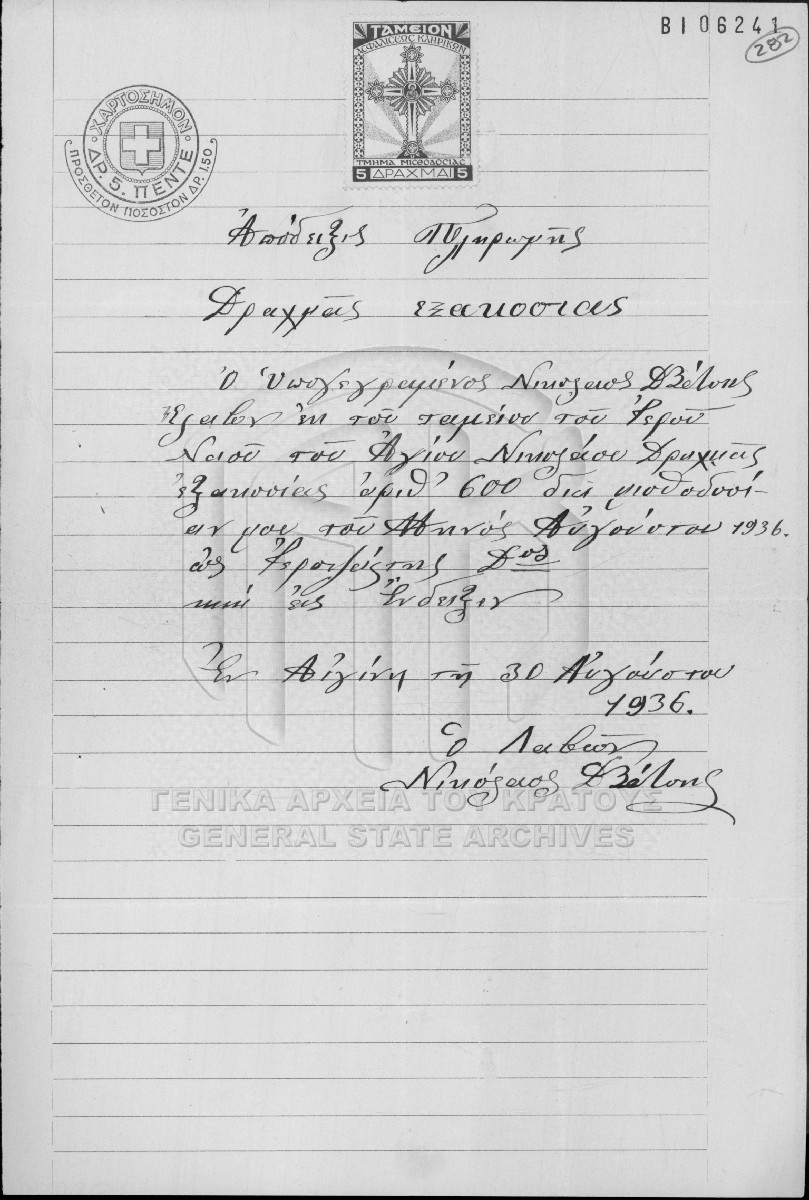 ΒΙ 06241
282
ΤΑΜΕΙΟΝ
ΑΣΦΑΛΙΣΕΩΣ ΚΛΗΡΙΚΩΝ
ΤΜΗΜΑ ΜΙΣΘΟΔΟΣΙΑΣ
5 ΔΡΑΧΜΑΙ 5
ΧΑΡΤΟΣΗΜΟΝ
ΔΡ. 5. ΠΕΝΤΕ
ΠΡΟΣΘΕΤΟΝ ΠΟΣΟΣΤΟΝ ΔΡ. 1.50
Ἀπόδειξις Πληρωμῆς
Δραχμᾶς εξακοσιας
Ὁ Ὑπογεγραμένος Νικόλαος
Ἔλαβον ἐκ τοῦ ταμείου τοῦ Ἱεροῦ
Ναοῦ τοῦ Ἁγίου Νικολάου Δραχμᾶς
ἑξακοσίας ἀριθ 600 διά μισθοδοσί-
αν μου τοῦ Μηνός Αὐγούστου 1936.
ὡς Ἱεροψάλτης Δος
καί εἰς Ἔνδειξιν
Ἐν Αἰγίνῃ τῇ 30 Αὐγούστου
1936.
Ὁ Λαβών
Νικόλαος
ΓΕΝΙΚΑ ΑΡΧΕΙΑ ΤΟΥ ΚΡΑΤΟΥΣ
GENERAL STATE ARCHIVES